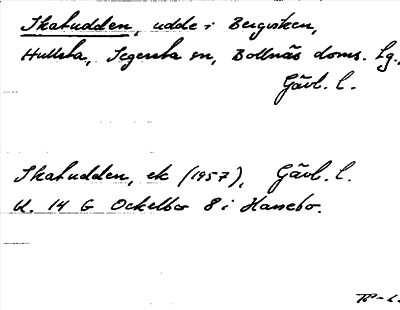 Skatudden, udde i Bergviken,
Hullsta, Segersta sn, Bollnäs doms. lg.,
Gävl. l.
Skatudden, ek (1957), Gävl. l.
K. 14 G Ockelbo 8 i Hanebo.